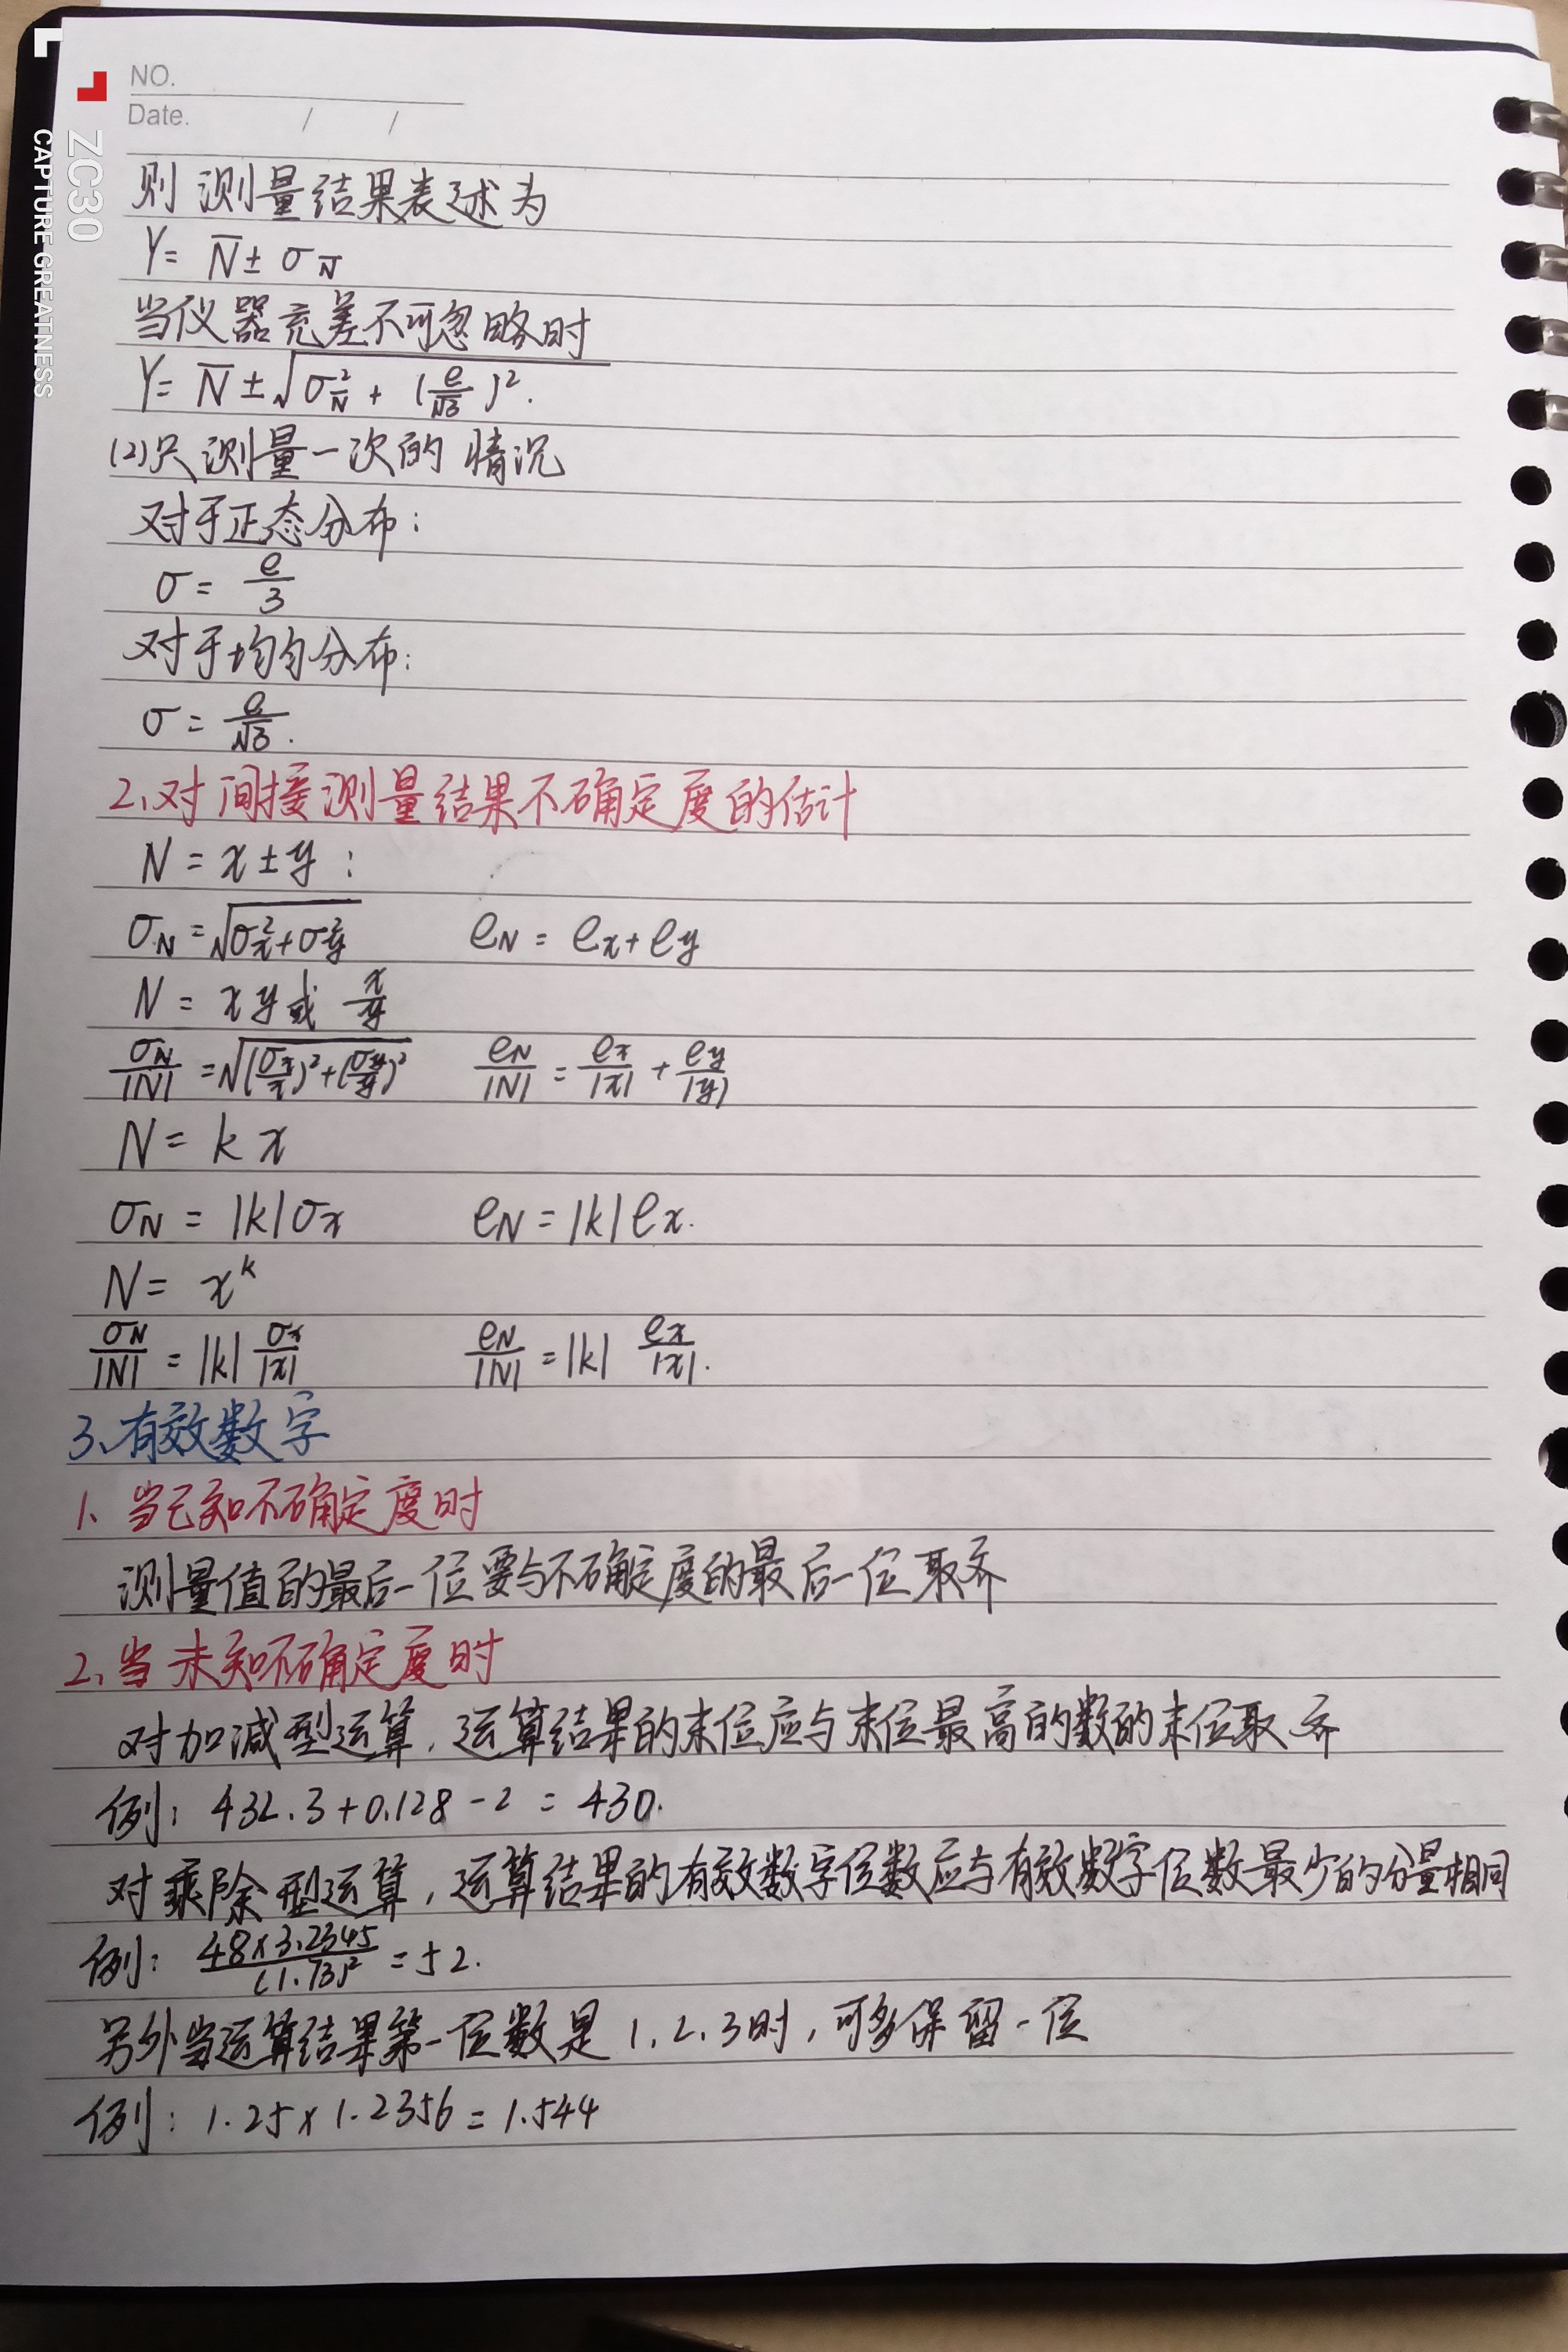 NO.
Date. / /
ZC30
CAPTURE GREATNESS
则测量结果表述为
Y = N̄ ± σ_N̄
当仪器充差不可忽略时
Y = N̄ ± √(σ_N̄² + (e/√3)²).
(2)只测量一次的情况
对于正态分布:
σ = e/3
对于均匀分布:
σ = e/√3.
2、对间接测量结果不确定度的估计
N = x ± y :
σ_N = √(σ_x² + σ_y²) e_N = e_x + e_y
N = xy 或 x/y
σ_N/|N| = √((σ_x/x)² + (σ_y/y)²) e_N/|N| = e_x/|x| + e_y/|y|
N = kx
σ_N = |k|σ_x e_N = |k|e_x.
N = x^k
σ_N/|N| = |k| σ_x/|x| e_N/|N| = |k| e_x/|x|.
3、有效数字
1、当已知不确定度时
测量值的最后一位要与不确定度的最后一位取齐
2、当未知不确定度时
对加减型运算,运算结果的末位应与末位最高的数的末位取齐
例: 432.3+0.128-2 = 430.
对乘除型运算,运算结果的有效数字位数应与有效数字位数最少的分量相同
例: 48×3.2345/(1.73)² = 52.
另外当运算结果第一位数是1、2、3时,可多保留一位
例: 1.25×1.2356 = 1.544